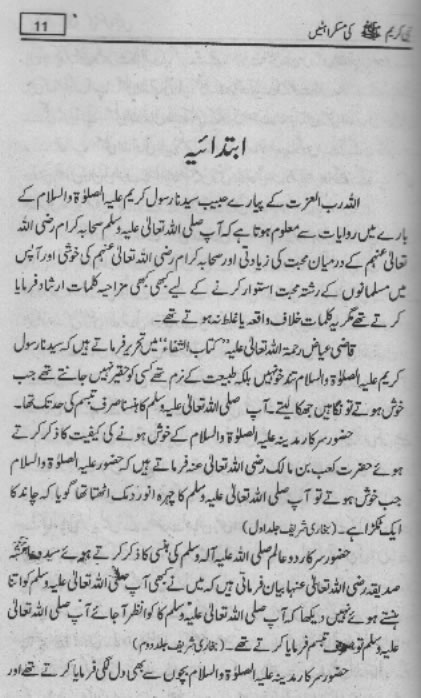 نبی کریم ﷺ کی مسکراہٹیں 11
ابتدائیہ
اللہ رب العزت کے پیارے حبیب سیدنا رسول کریم علیہ الصلوٰۃ والسلام کے
بارے میں روایات سے معلوم ہوتا ہے کہ آپ صلی اللہ تعالیٰ علیہ وسلم صحابہ کرام رضی اللہ
تعالیٰ عنہم کے درمیان محبت کی زیادتی اور صحابہ کرام رضی اللہ تعالیٰ عنہم کی خوشی اور آپس
میں مسلمانوں کے رشتہ محبت استوار کرنے کے لیے کبھی کبھی مزاحیہ کلمات ارشاد فرمایا
کرتے تھے مگر یہ کلمات خلاف واقعہ یا غلط نہ ہوتے تھے۔
قاضی عیاض رحمۃ اللہ تعالیٰ علیہ ”کتاب الشفاء“ میں تحریر فرماتے ہیں کہ سیدنا رسول
کریم علیہ الصلوٰۃ والسلام تند خو نہیں بلکہ طبیعت کے نرم تھے کسی کو حقیر نہیں جانتے تھے جب
خوش ہوتے تو نگاہیں جھکا لیتے۔ آپ صلی اللہ تعالیٰ علیہ وسلم کا ہنسنا صرف تبسم کی حد تک تھا۔
حضور سرکار مدینہ علیہ الصلوٰۃ والسلام کے خوش ہونے کی کیفیت کا ذکر کرتے
ہوئے حضرت کعب بن مالک رضی اللہ تعالیٰ عنہ فرماتے ہیں کہ حضور علیہ الصلوٰۃ والسلام
جب خوش ہوتے تو آپ صلی اللہ تعالیٰ علیہ وسلم کا چہرہ انور دمک اٹھتا تھا گویا کہ چاند کا
ایک ٹکڑا ہے۔ (بخاری شریف جلد اول)
حضور سرکار دو عالم صلی اللہ علیہ آلہ وسلم کی ہنسی کا ذکر کرتے ہوئے سیدہ عائشہ
صدیقہ رضی اللہ تعالیٰ عنہا بیان فرماتی ہیں کہ میں نے کبھی آپ صلی اللہ تعالیٰ علیہ وسلم کو اتنا
ہنستے ہوئے نہیں دیکھا کہ آپ صلی اللہ تعالیٰ علیہ وسلم کا کوا نظر آ جائے آپ صلی اللہ تعالیٰ
علیہ وسلم تو صرف تبسم فرمایا کرتے تھے۔ (بخاری شریف جلد دوم)
حضور سرکار مدینہ علیہ الصلوٰۃ والسلام بچوں سے بھی دل لگی فرمایا کرتے تھے اور